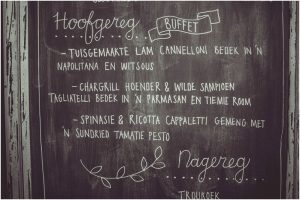 Hoofgereg
BUFFET
- TUISGEMAARTE LAM CANNELLONI BEDEK IN 'N
NAPOLITANA EN WITSOUS
- CHARGRILL HOENDER & WILDE SAMPOEN
TAGLIATELLI BEDEK IN 'N PARMASAN EN TIEMIE ROOM
- SPINASIE & RICOTTA CAPPALETTI GEMENG MET
'N SUNDRIED TAMATIE PESTO
Nagereg
TROUKOEK